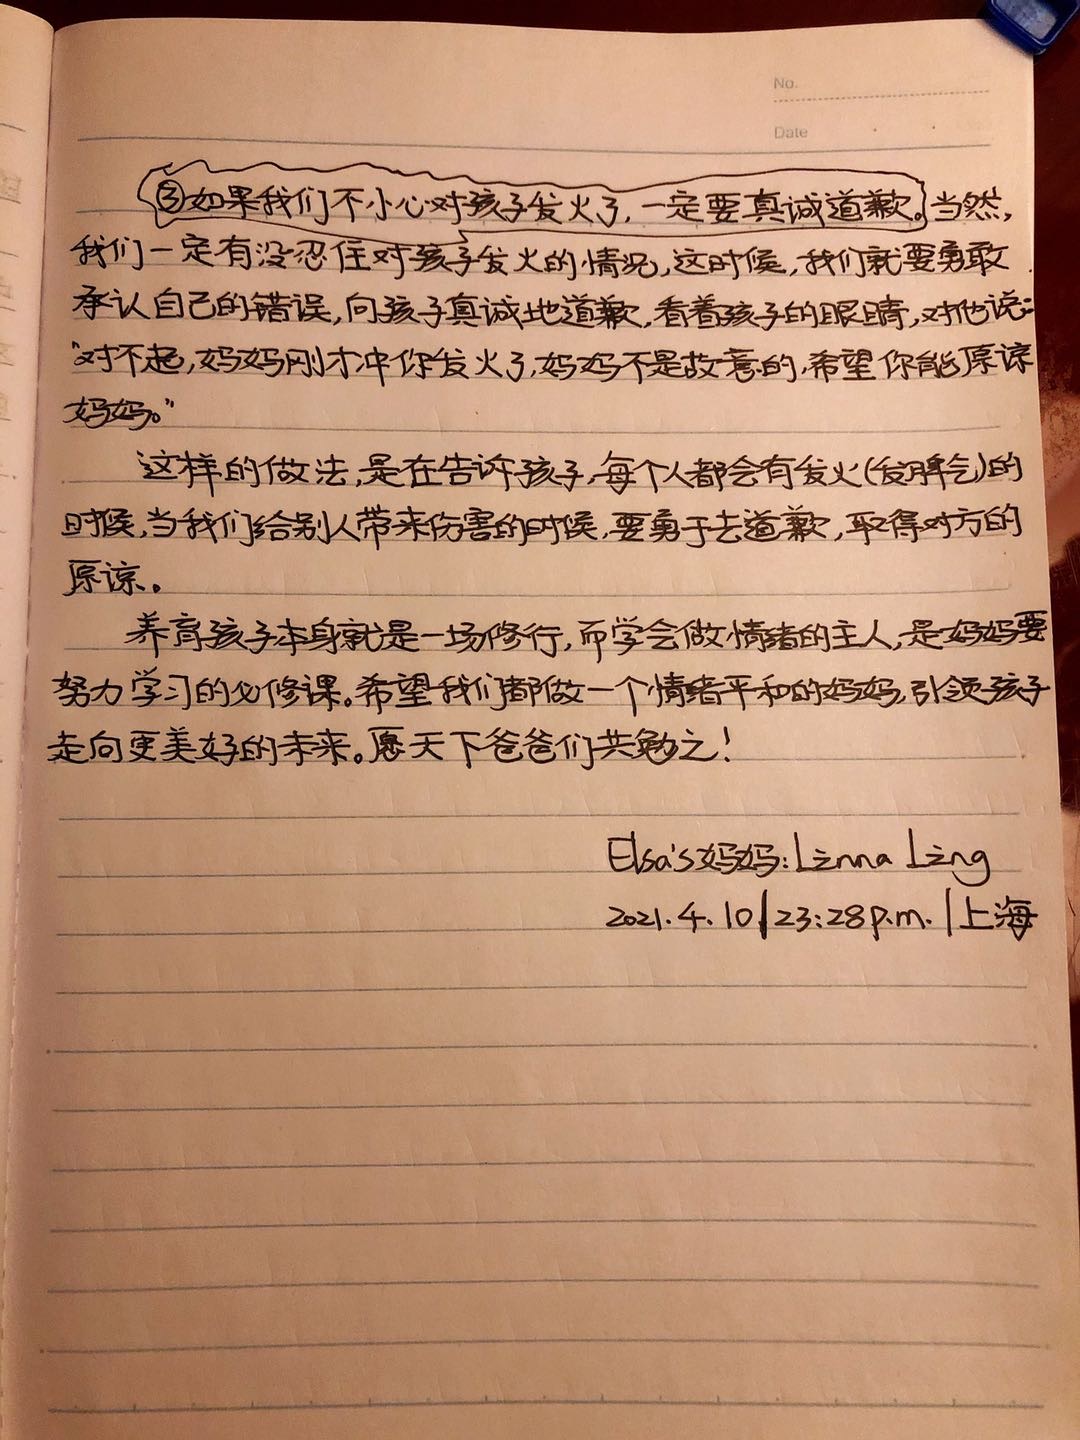 No.
Date
③如果我们不小心对孩子发火了，一定要真诚道歉。当然，
我们一定有没忍住对孩子发火的情况，这时候，我们就要勇敢
承认自己的错误，向孩子真诚地道歉，看着孩子的眼睛，对他说：
“对不起，妈妈刚才冲你发火了，妈妈不是故意的，希望你能原谅
妈妈。”
这样的做法，是在告诉孩子，每个人都会有发火（发脾气）的
时候，当我们给别人带来伤害的时候，要勇于去道歉，取得对方的
原谅。
养育孩子本身就是一场修行，而学会做情绪的主人，是妈妈要
努力学习的必修课。希望我们都做一个情绪平和的妈妈，引领孩子
走向更美好的未来。愿天下爸爸们共勉之！
Elsa's妈妈：Linna Ling
2021.4.10|23:28p.m.|上海